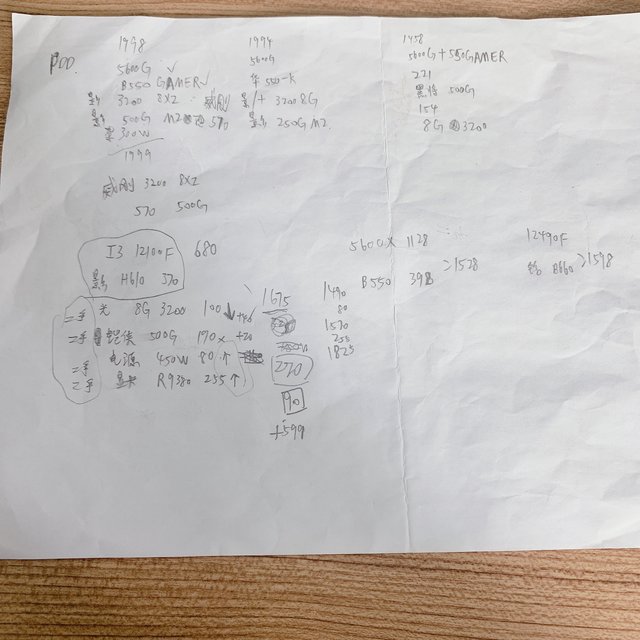 PDD
1998
5600G ✓
B550 GAMER ✓
3200 8X2 威刚
500G M2 570
300W
1999
威刚 3200 8X2
570 500G
1994
5600G
华 550-K
3200 8G
250G M2
1458
5600G+550GAMER
221
500G
154
8G 3200
I3 12100F 680
H610 570
二手 光 8G 3200 100
二手 铠侠 500G 170 x +20
二手 电源 450W 80 ↑
二手 显卡 R9380 255 ↑
1675
270
90
+599
1490
80
1570
255
1825
5600X 1128
B550 398
>1528
12490F
B660
>1598